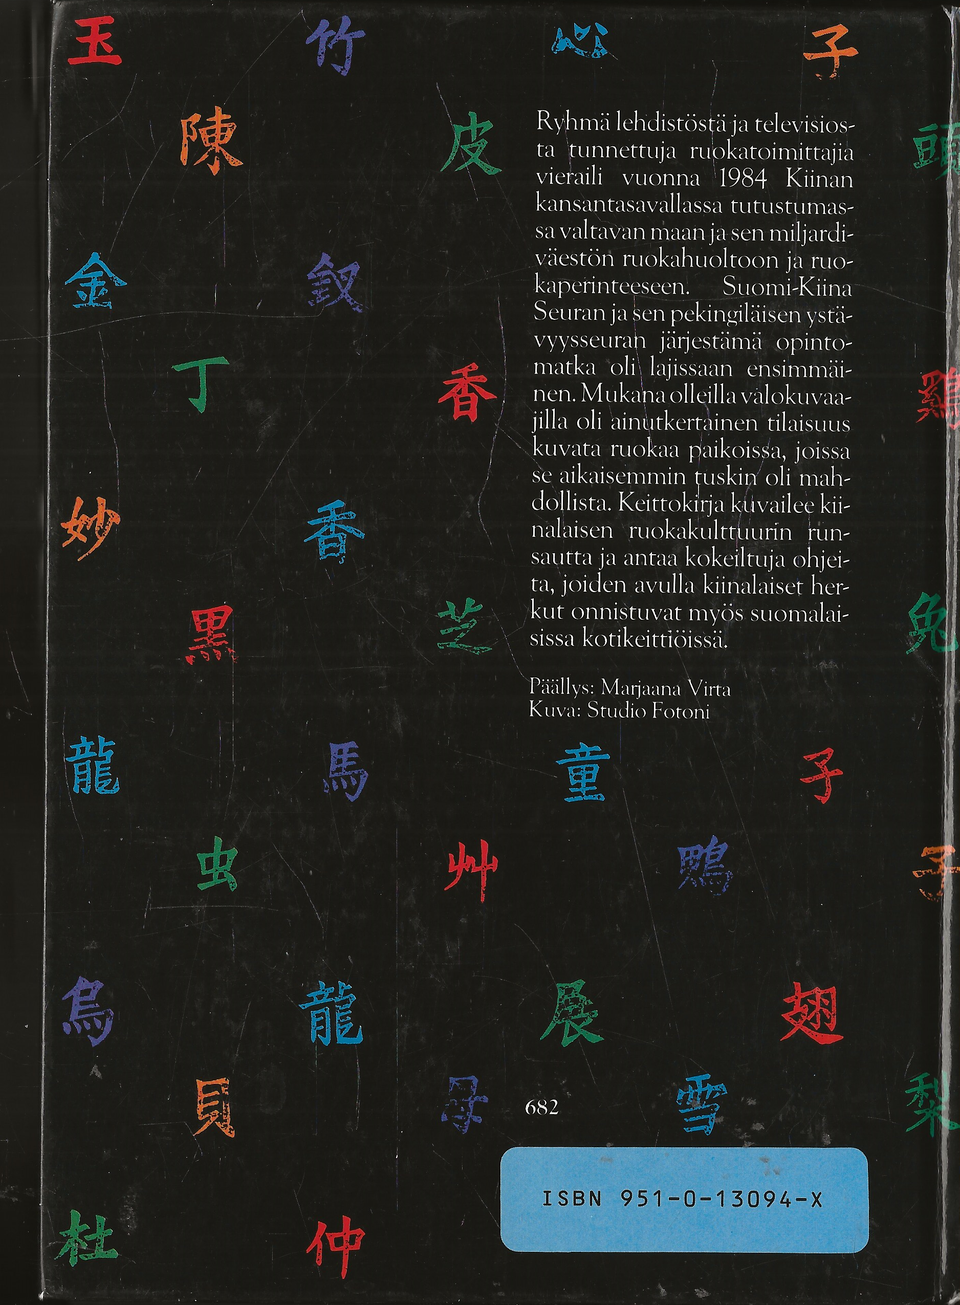 玉 竹 心 子
陳 皮 頭
Ryhmä lehdistöstä ja televisios-
ta tunnettuja ruokatoimittajia
vieraili vuonna 1984 Kiinan
kansantasavallassa tutustumas-
sa valtavan maan ja sen miljardi-
väestön ruokahuoltoon ja ruo-
kaperinteeseen. Suomi-Kiina
Seuran ja sen pekingiläisen ystä-
vyysseuran järjestämä opinto-
matka oli lajissaan ensimmäi-
nen. Mukana olleilla valokuvaa-
jilla oli ainutkertainen tilaisuus
kuvata ruokaa paikoissa, joissa
se aikaisemmin tuskin oli mah-
dollista. Keittokirja kuvailee kii-
nalaisen ruokakulttuurin run-
sautta ja antaa kokeiltuja ohjei-
ta, joiden avulla kiinalaiset her-
kut onnistuvat myös suomalai-
sissa kotikeittiöissä.
Päällys: Marjaana Virta
Kuva: Studio Fotoni
金 釵
丁 香 鷄
妙 香
黑 芝 兔
龍 馬 童 子
虫 艸 鴨 子
烏 龍 展 翅
貝 母 雪 梨
682
ISBN 951-0-13094-X
杜 仲